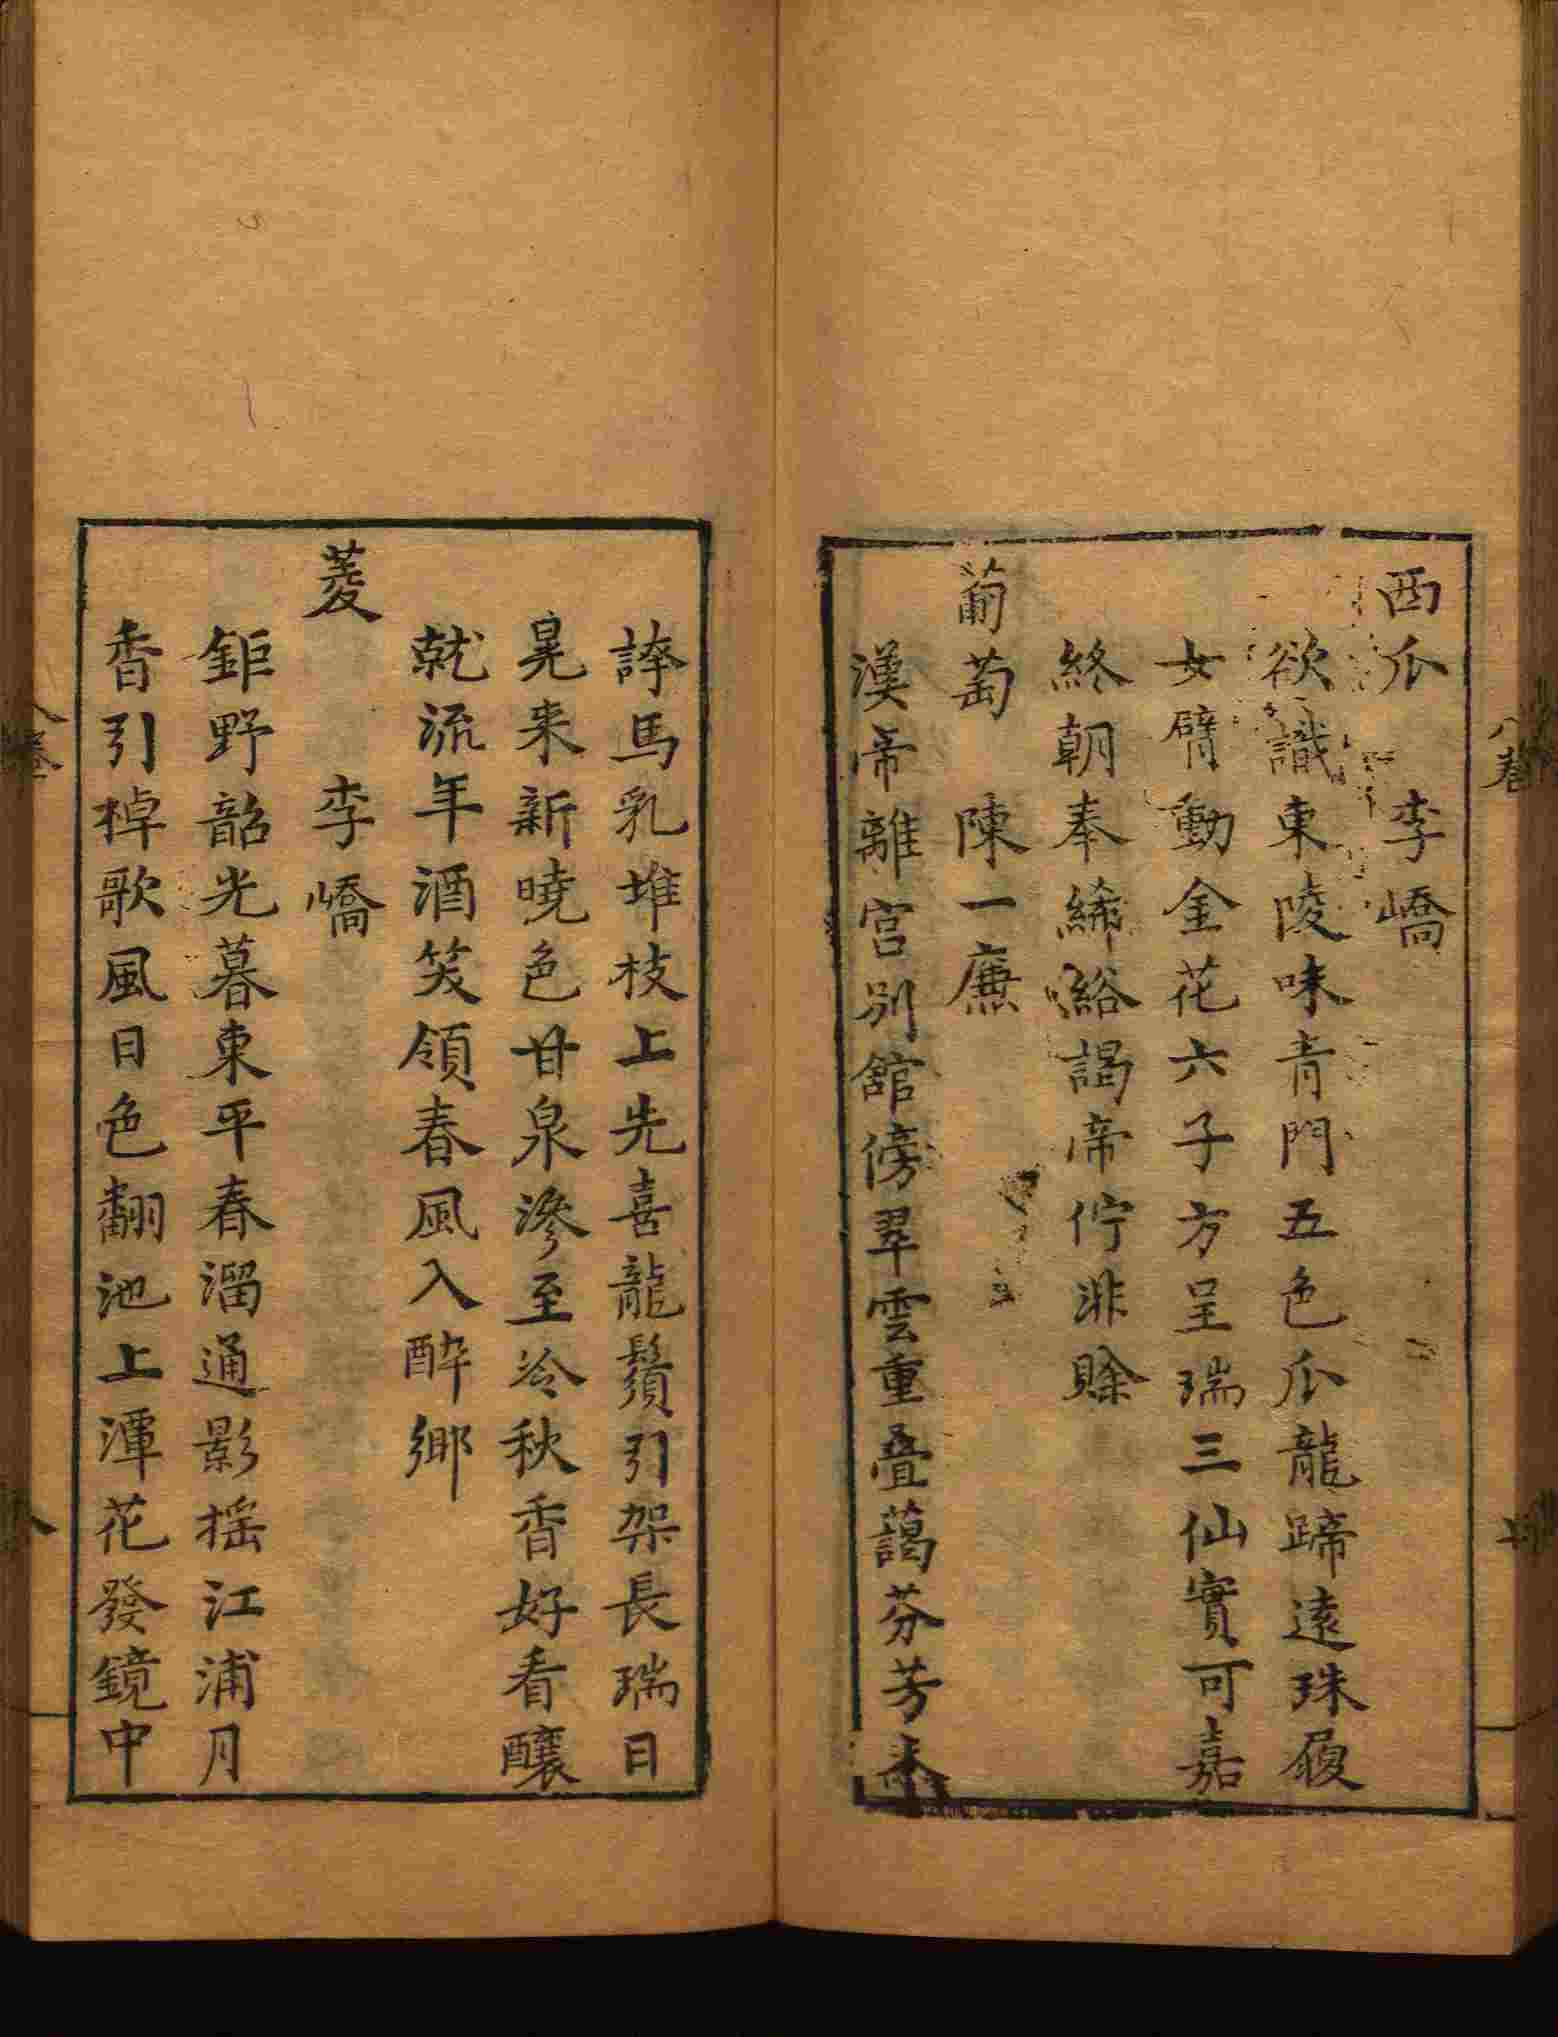 西瓜 李嶠
欲識東陵味青門五色瓜龍蹄遠珠履
女臂動金花六子方呈瑞三仙實可嘉
終朝奉絺綌謁帝佇非賖
葡萄 陳一廉
漢帝離宮别館傍翠雲重疊藹芬芳未
誇馬乳堆枝上先喜龍鬚引架長瑞日
晃来新曉色甘泉滲至冷秋香好看釀
就流年酒笑領春風入醉鄉
菱 李嶠
鉅野韶光暮東平春溜通影摇江浦月
香引棹歌風日色翻池上潭花發鏡中
八卷
上